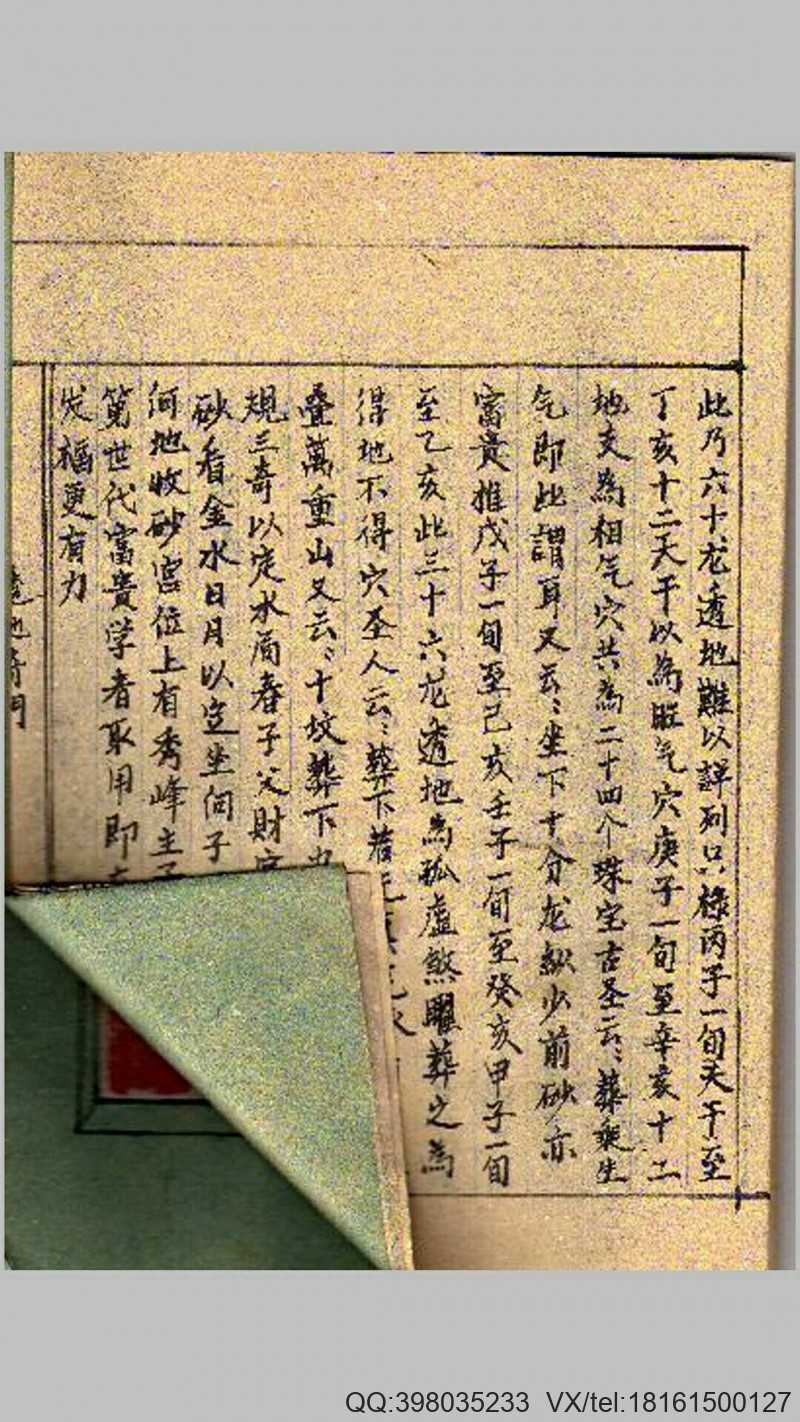 此乃六十龙透地難以詳列只祿丙子一旬天干至
丁亥十二天干以為旺气穴庚子一旬至辛亥十二
地支為相气穴共為二十四个珠宝古圣云〻葬乘生
气即此謂耳又云〻坐下十分龙縱少前砂亦
富贵推戊子一旬至己亥壬子一旬至癸亥甲子一旬
至乙亥此三十六龙透地為孤虛煞曜葬之為
得地不得穴圣人云〻葬下若
叠萬重山又云〻十坟葬下
規三奇以定水局看子父財
砂看金水日月以定坐向子
何地收砂宮位上有秀峰主
第世代富貴学者取用即
发福更有力
QQ:398035233 VX/tel:18161500127